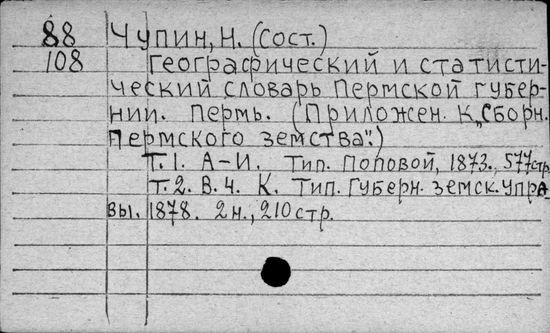 88 Чупин, Н. (сост.)
108 Географический и статисти-
ческий словарь Пермской губер-
нии. Пермь. (Приложен. к „Сборн.
Пермского земства".)
Т.1. А-И. Тип. Поповой, 1873., 577стр.
Т.2. В.4. К. Тип. Губерн. земск. упра-
вы. 1878. 2н., 210 стр.